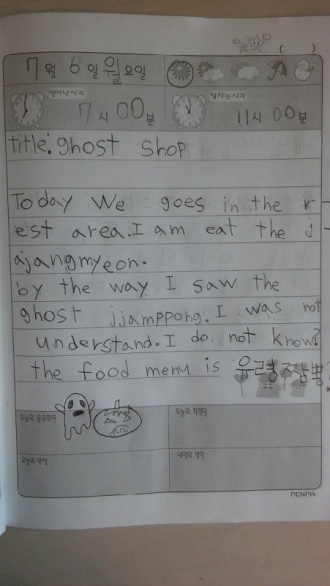 ( )
7월 6일 월요일
일어난시각
잠자는시각
7시 00분
11시 00분
title: ghost shop
Today We goes in the r
est area. I am eat the j
ajangmyeon.
by the way I saw the
ghost jjamppong. I was not
understand. I do not know?
the food menu is 유령짬뽕?
오늘의 중요한일
오늘의 착한일
오늘의 반성
내일의 할일